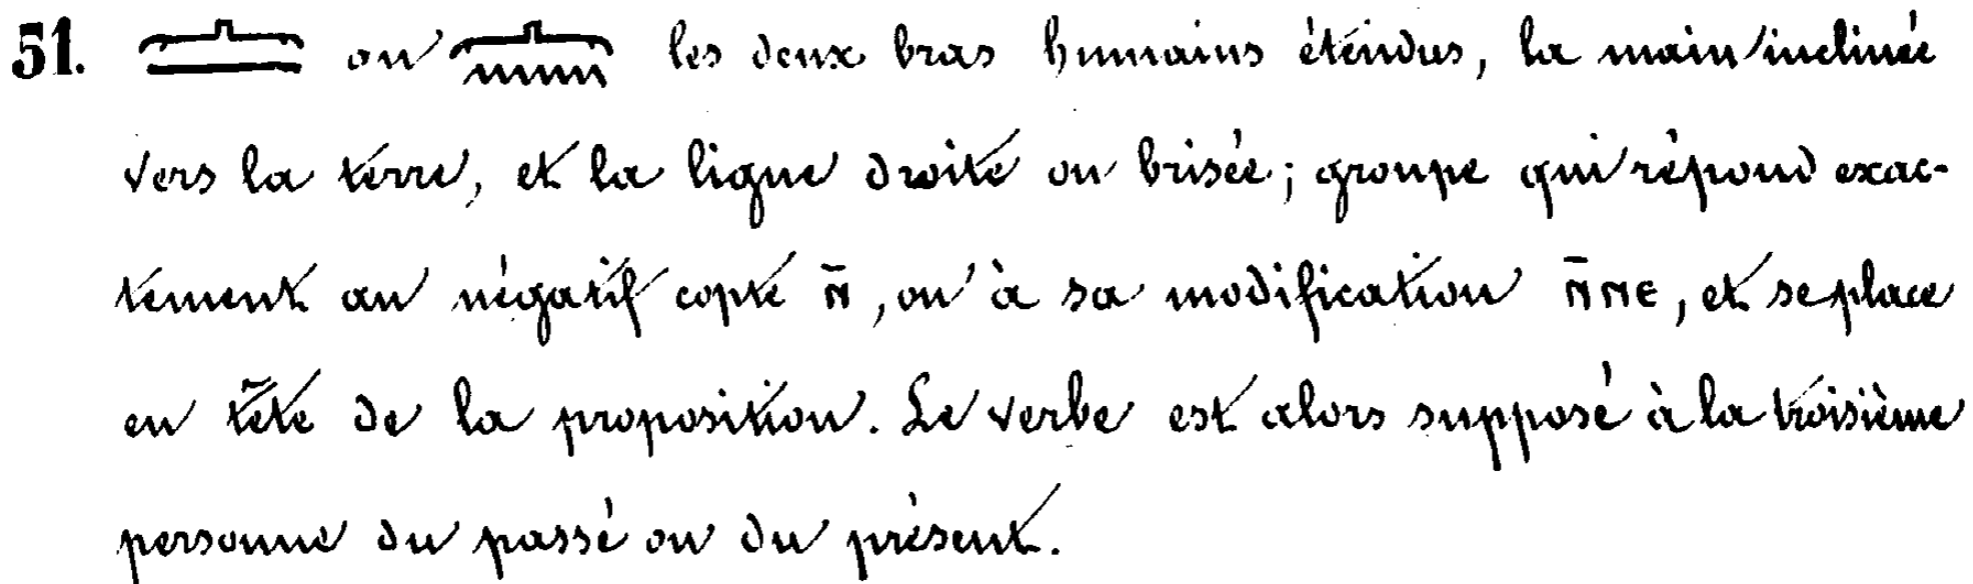 51. 𓂜 ou 𓂜𓈖 les deux bras humains étendus, la main inclinée
vers la terre, et la ligne droite ou brisée; groupe qui répond exac-
tement au négatif copte ⲛ̄, ou à sa modification ⲛ̄ⲛⲉ, et se place
en tête de la proposition. Le verbe est alors supposé à la troisième
personne du passé ou du présent.